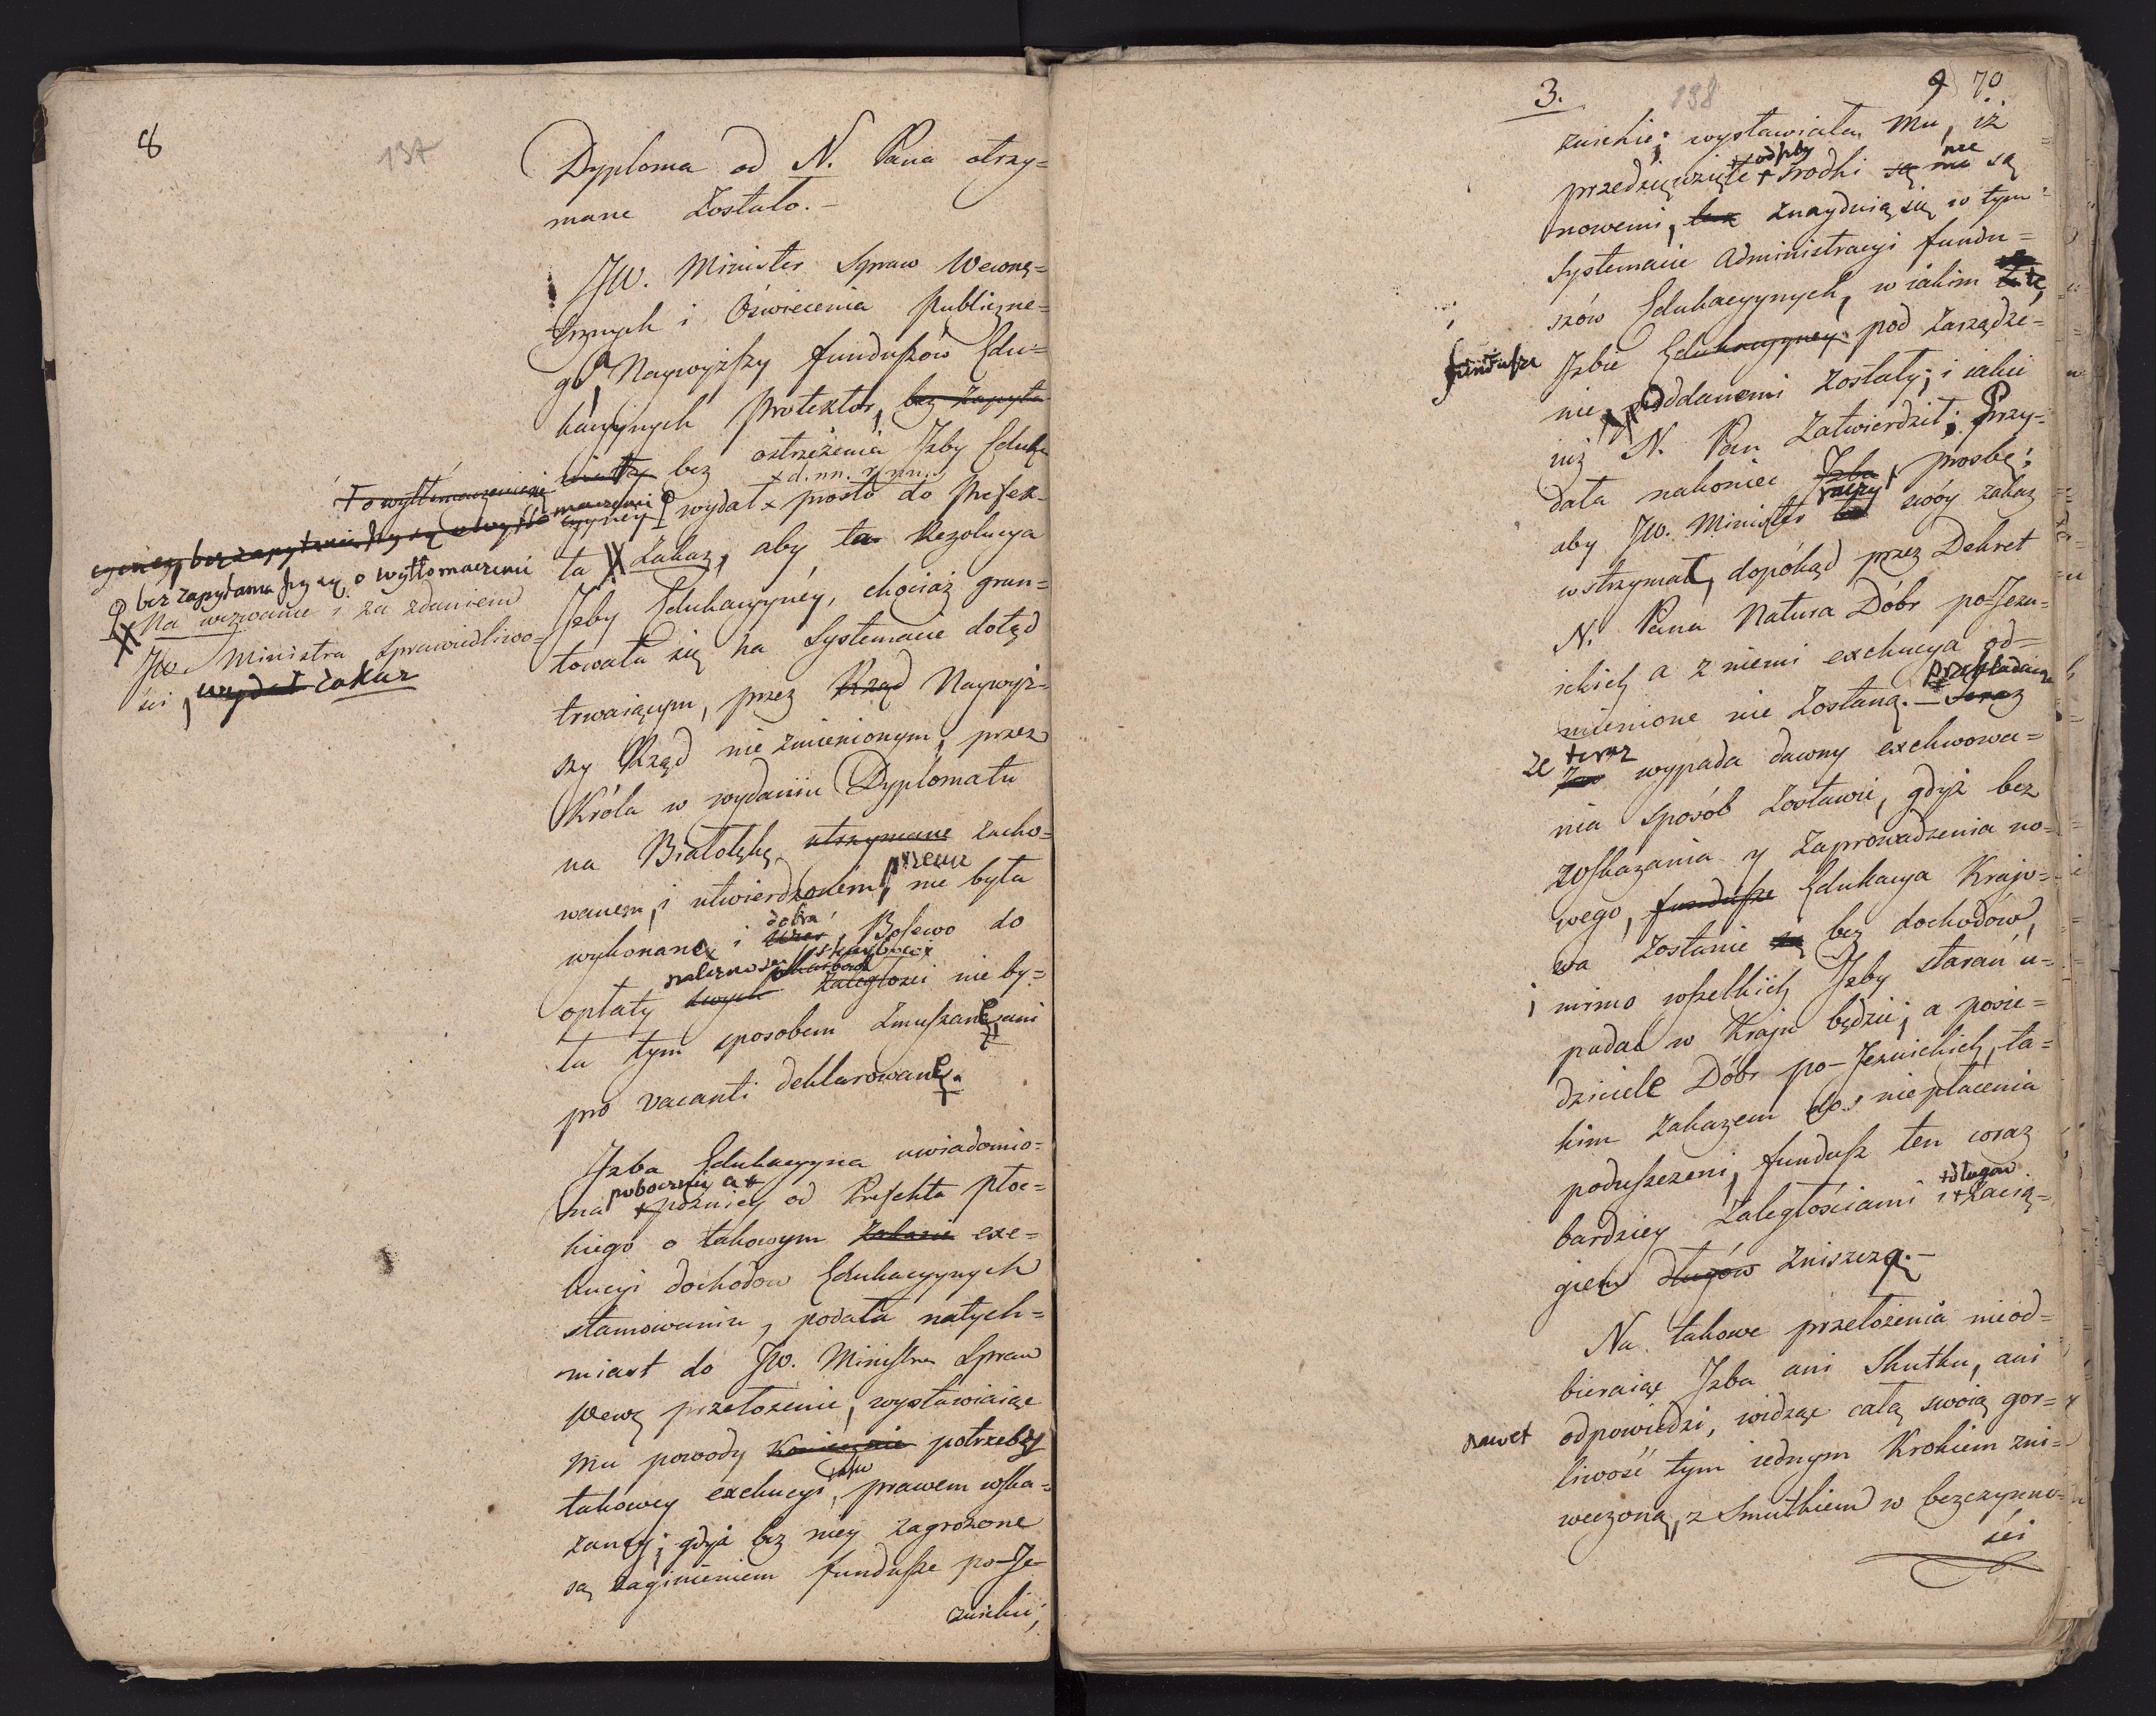 8
137
Dyploma od N. Pana otrzy=
mane Zostało.-
JW. Minister Spraw Wewnę=
trznych i Oświecenia Publiczne=
go, Naywyższy funduszów Edu=
kacyjnych Protektor, bez Zapyta
nia się bez ostrzeżenia Izby Eduka
cyjney wydał x prosto do Prefek=
ta Zakaz, aby ta Rezolucya
Izby Edukacyjnéy, chociaż grun=
towała się na Systemacie dotąd
trwaiącym, przez Rząd Naywyż=
szy Rząd nie zmienionym, przez
Króla w wydaniu Dyplomatu
na Białołękę utrzymane zacho=
wanem, i utwierdzonem, przeze nie była
wykonaną i dobra Bosewo do
opłaty swych należności skarbowi zaległości nie by=
ły tym sposobem zmuszane, ani
pro vacanti deklarowane.
To wytłómaczenie
cyiney, bez zapytania Izy się o wytłomaczenie
bez zapytania Izy się o wytłomaczenie
Na wezwanie i za zdaniem
JW. Ministra Sprawiedliwo=
ści, wydał zakaz
Izba Edukacyyna uwiadomio=
na pobocznie a + póżniey od Prefekta Płoc=
kiego o takowym Zakazie exe=
kucyi dochodów Edukacyynych
stamowaniu, podała natych=
miast do JW. Ministra Spraw
Wewę przełożenie, wystawiaiąc
mu powody Koniecznie potrzeby
takowey exekucyi, prawem wska=
zaney; gdyż bez niey zagrożone
są zaginieniem fundusze po-Je
zuickie;
3.
138
9 70
zuickie; wystawiała mu, iż
przedsięwzięte + od Izby srodki są nie nie są
nowemi, lecz znayduią się w tym
Systemacie Administracyi fundu=
szów Edukacyynych, w iakim te
fundusze Izbie Edukacyyney pod Zarządze=
nie poddanemi zostały; i iakie
iuż N. Pan Zatwierdził; Przy=
dała nakoniec Izba prosbę;
aby JW. Minister raczył swóy zakaz
wstrzymać, dopókąd przez Dekret
N. Pana Natura Dóbr po-Jezu=
ickich a z niemi exekucya od=
mienione nie Zostaną. - Teraz przekładaiąc
że teraz wypada dawny exekwowa=
nia sposób zostawić, gdyż bez
wskazania y zaprowadzenia no=
wego, fundusze Edukacya Krajo=
wa Zostanie bez dochodów,
i mimo wszelkich Izby starań u=
padać w Kraju będzie; a posie=
dziciele Dóbr po-Jezuickich, ta=
kim zakazem do nie płacenia
poduszczeni, fundusz ten coraz
bardziey Zaległościami i + długów zacią=
giem długów zniszczą.-
Na takowe przełożenia nieod=
bieraiąc Izba ani Skutku, ani
nawet odpowiedzi, widząc całą swoią gor=
liwość tym iednym Krokiem zni=
weczoną, z Smutkiem w bezczynno=
ści